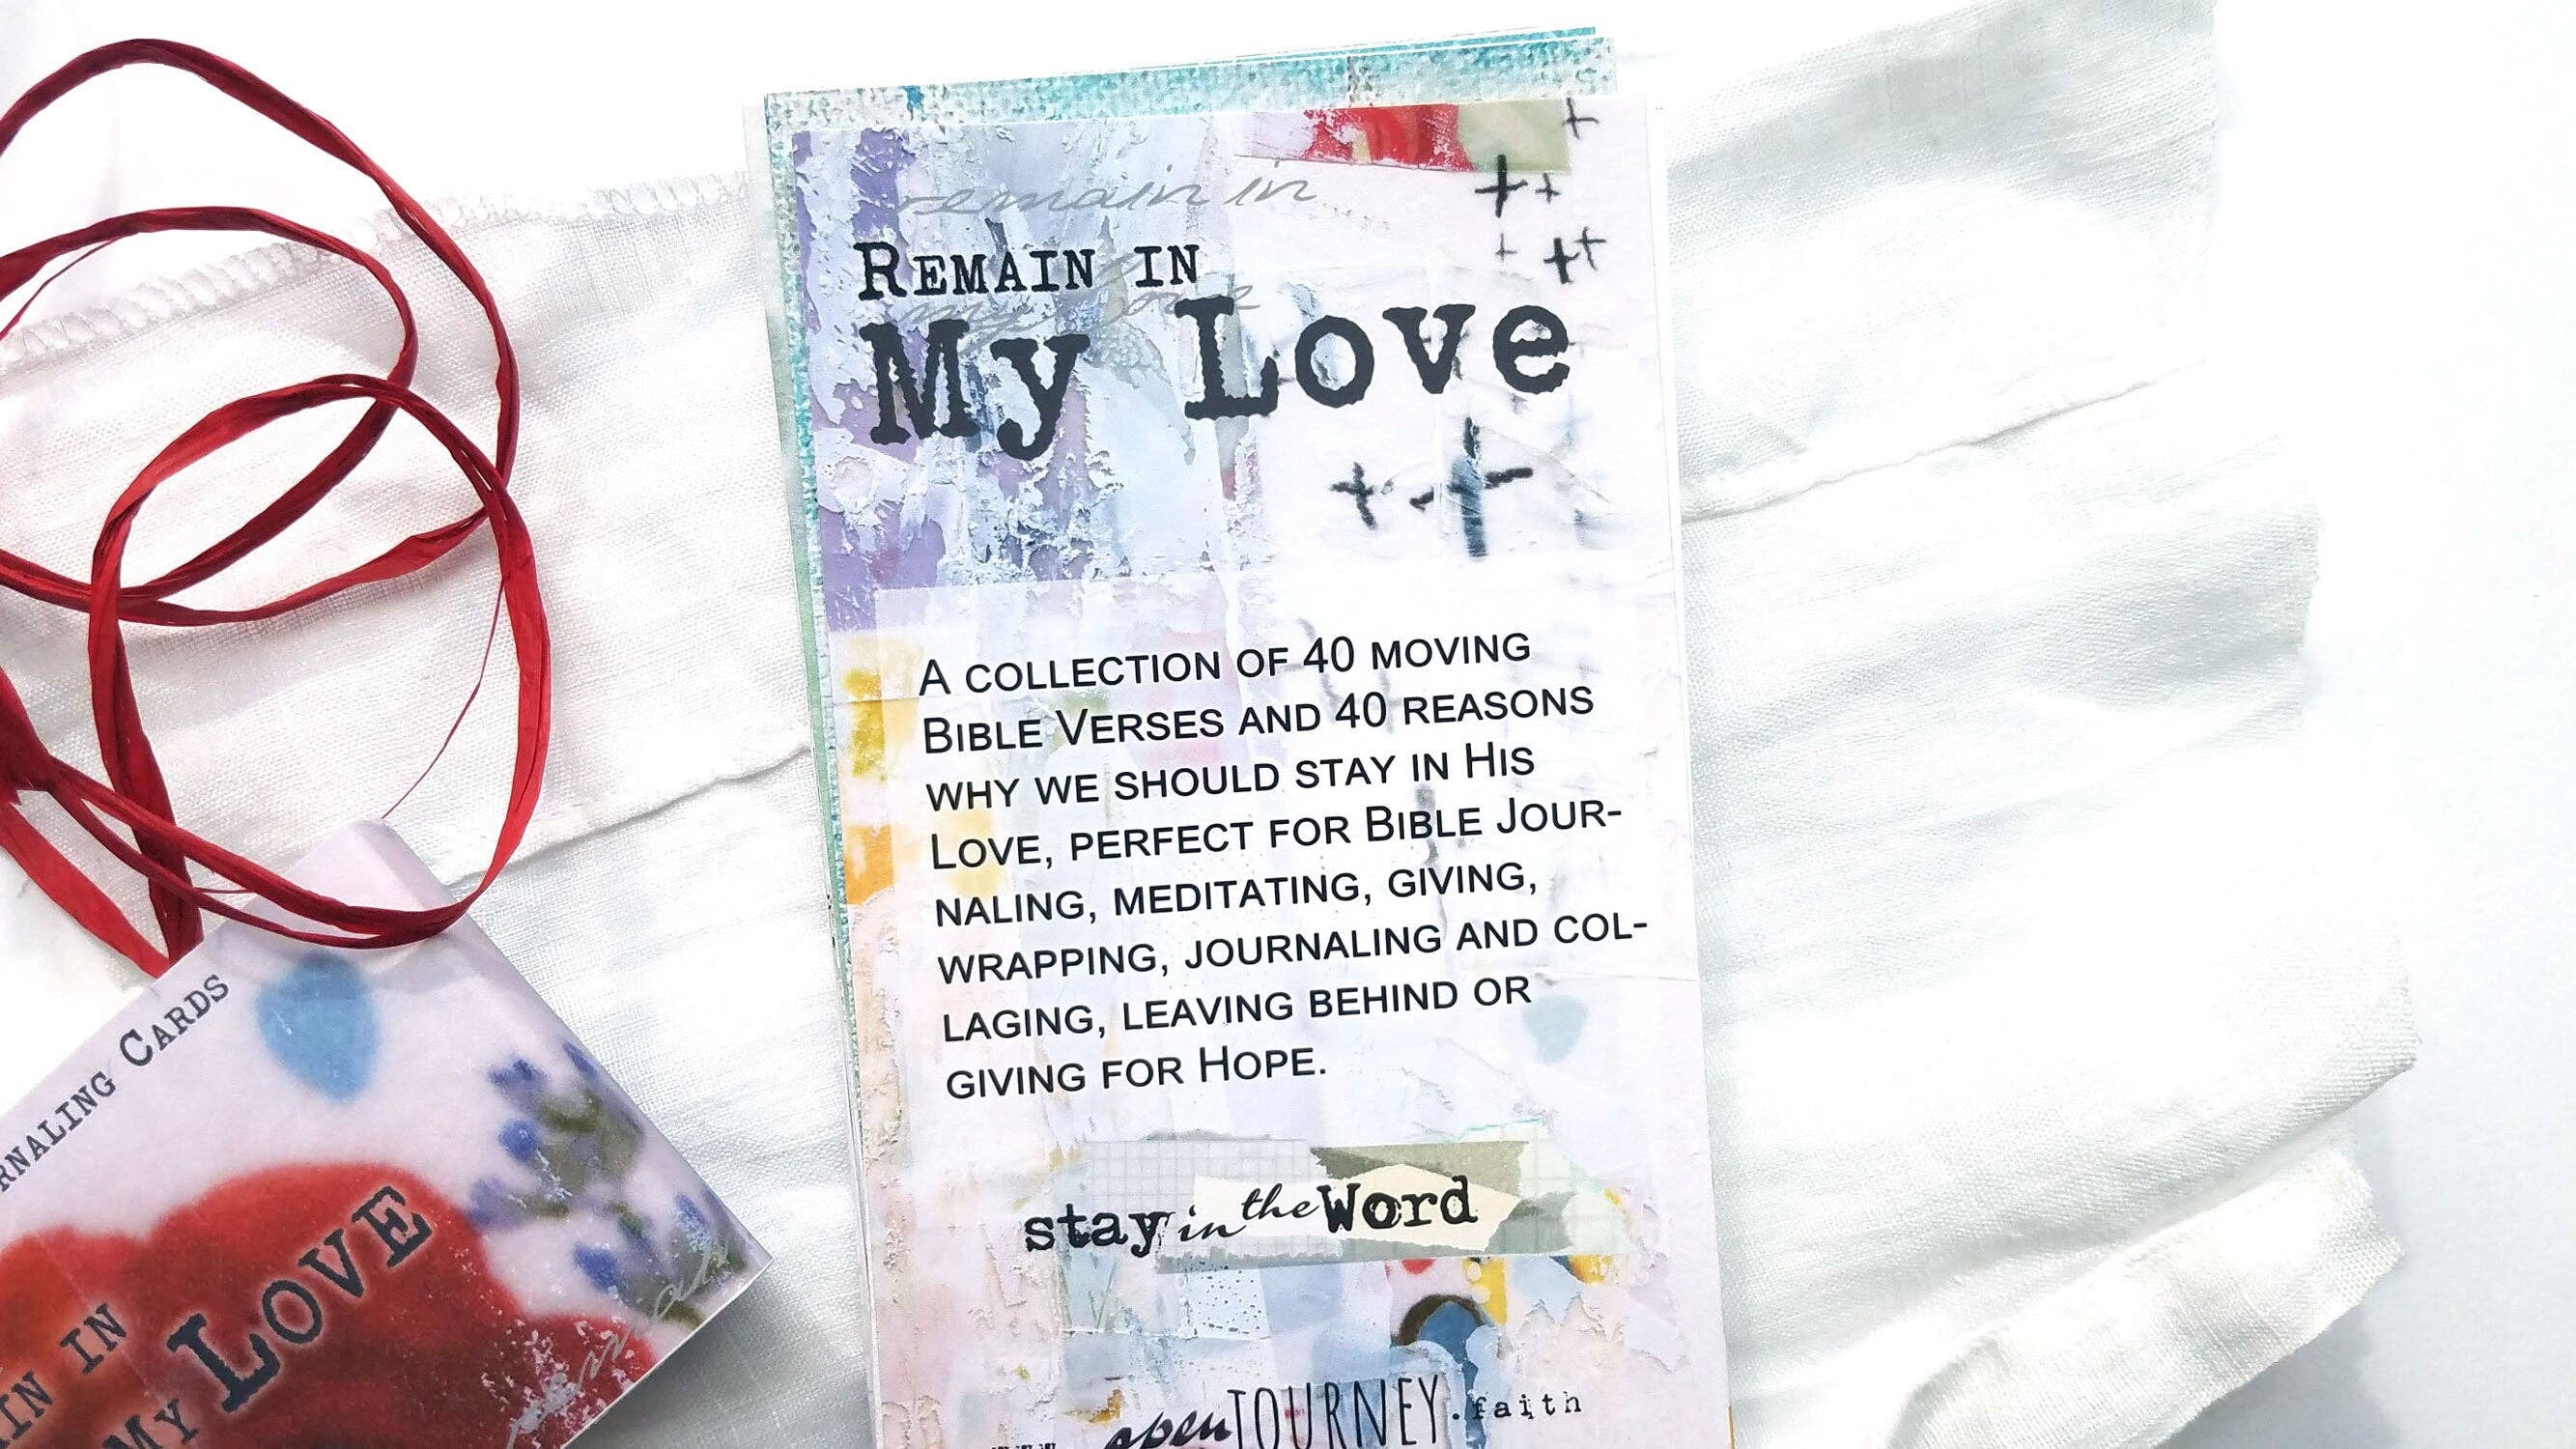 remain in
REMAIN IN
my love
My Love
A COLLECTION OF 40 MOVING
BIBLE VERSES AND 40 REASONS
WHY WE SHOULD STAY IN HIS
LOVE, PERFECT FOR BIBLE JOUR-
NALING, MEDITATING, GIVING,
WRAPPING, JOURNALING AND COL-
LAGING, LEAVING BEHIND OR
GIVING FOR HOPE.
stay in the Word
open JOURNEY.faith
RNALING CARDS
IN IN
MY LOVE